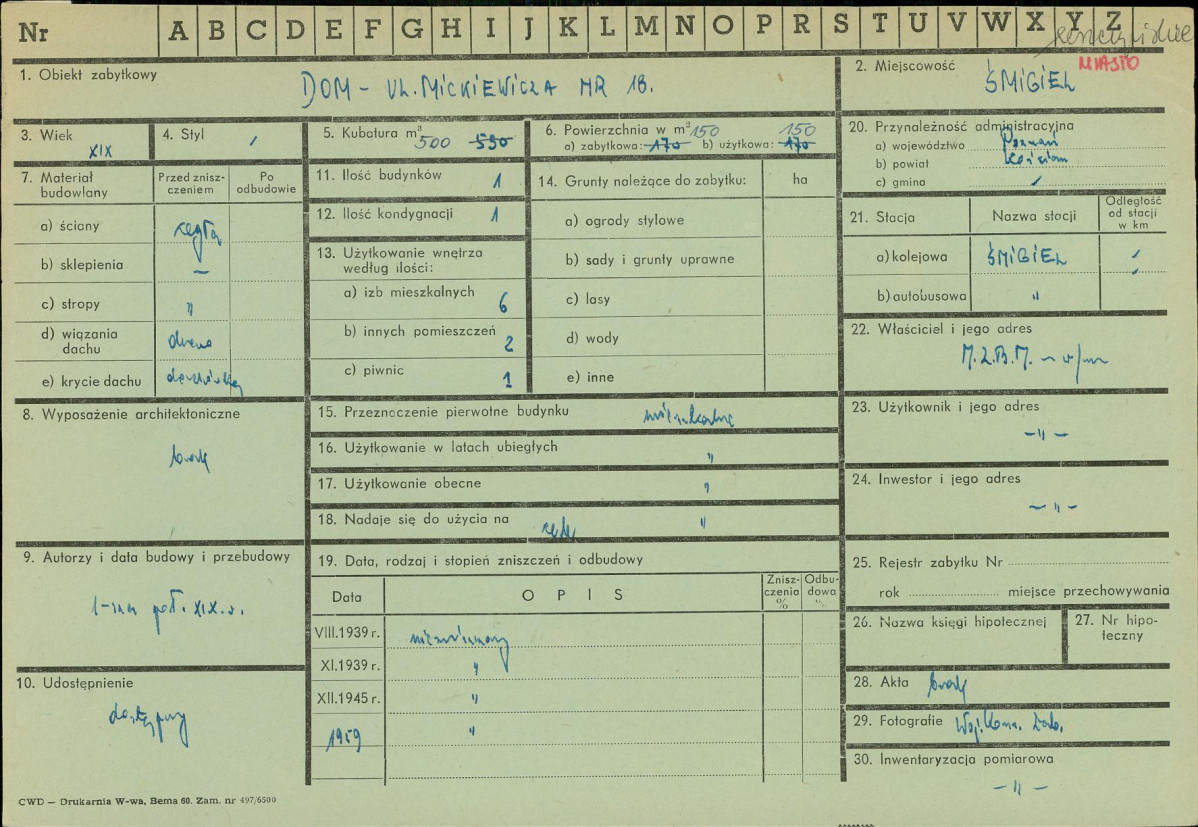 Nr A B C D E F G H I J K L M N O P R S T U V W X Y Z
1. Obiekt zabytkowy
DOM - UL. MICKIEWICZA NR 18.
2. Miejscowość MIASTO
ŚMIGIEL
3. Wiek
XIX
4. Styl
/
5. Kubatura m³
500 530
6. Powierzchnia w m² 150 150
a) zabytkowa: 170 b) użytkowa: 170
20. Przynależność administracyjna
a) województwo Poznań
b) powiat Kościan
c) gmina /
7. Materiał budowlany
Przed zniszczeniem
Po odbudowie
a) ściany cegła
b) sklepienia —
c) stropy "
d) wiązania dachu drewno
e) krycie dachu dachówka
11. Ilość budynków 1
12. Ilość kondygnacji 1
13. Użytkowanie wnętrza
według ilości:
a) izb mieszkalnych 6
b) innych pomieszczeń 2
c) piwnic 1
14. Grunty należące do zabytku: ha
a) ogrody stylowe
b) sady i grunty uprawne
c) lasy
d) wody
e) inne
21. Stacja
Nazwa stacji
Odległość od stacji w km
a) kolejowa ŚMIGIEL /
b) autobusowa " /
22. Właściciel i jego adres
M.Z.B.M. w/m
8. Wyposażenie architektoniczne
brak
15. Przeznaczenie pierwotne budynku mieszkalne
16. Użytkowanie w latach ubiegłych "
17. Użytkowanie obecne "
18. Nadaje się do użycia na cele "
23. Użytkownik i jego adres
— " —
24. Inwestor i jego adres
— " —
9. Autorzy i data budowy i przebudowy
1-sza poł. XIX w.
19. Data, rodzaj i stopień zniszczeń i odbudowy
Data
OPIS
Zniszczenia %
Odbudowa %
VIII.1939 r.
XI.1939 r. "
XII.1945 r. "
1959 "
25. Rejestr zabytku Nr
rok miejsce przechowywania
26. Nazwa księgi hipotecznej
27. Nr hipoteczny
10. Udostępnienie
dostępny
28. Akta brak
29. Fotografie Woj. Kons. Zab.
30. Inwentaryzacja pomiarowa
— " —
CWD — Drukarnia W-wa, Bema 60. Zam. nr 497/6500